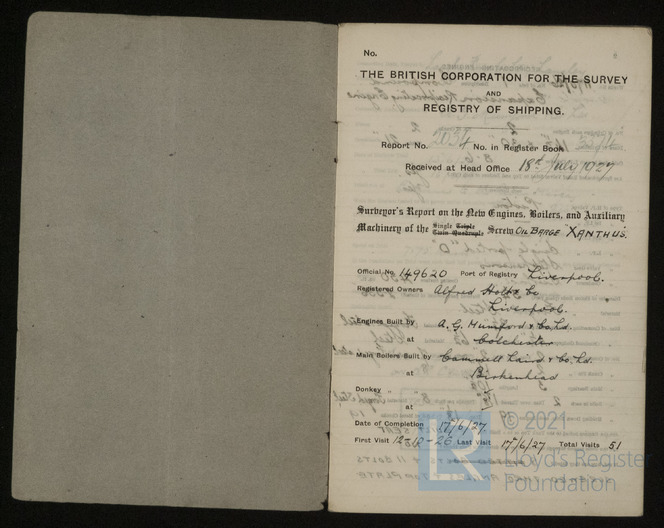 No.
THE BRITISH CORPORATION FOR THE SURVEY
AND
REGISTRY OF SHIPPING.
Report No. 2034 No. in Register Book
Received at Head Office 18th July 1927
Surveyor's Report on the New Engines, Boilers, and Auxiliary
Machinery of the Single Triple Twin Quadruple Screw OIL BARGE "XANTHUS".
Official No. 149620 Port of Registry Liverpool.
Registered Owners Alfred Holt & Co
Liverpool.
Engines Built by A. G. Mumford & Co Ld.
at Colchester
Main Boilers Built by Cammell Laird & Co. Ld.
at Birkenhead
Donkey "
at
Date of Completion 17/6/27.
First Visit 12-10-26 Last Visit 17/6/27 Total Visits 51
LR
© 2021
Lloyd's Register
Foundation